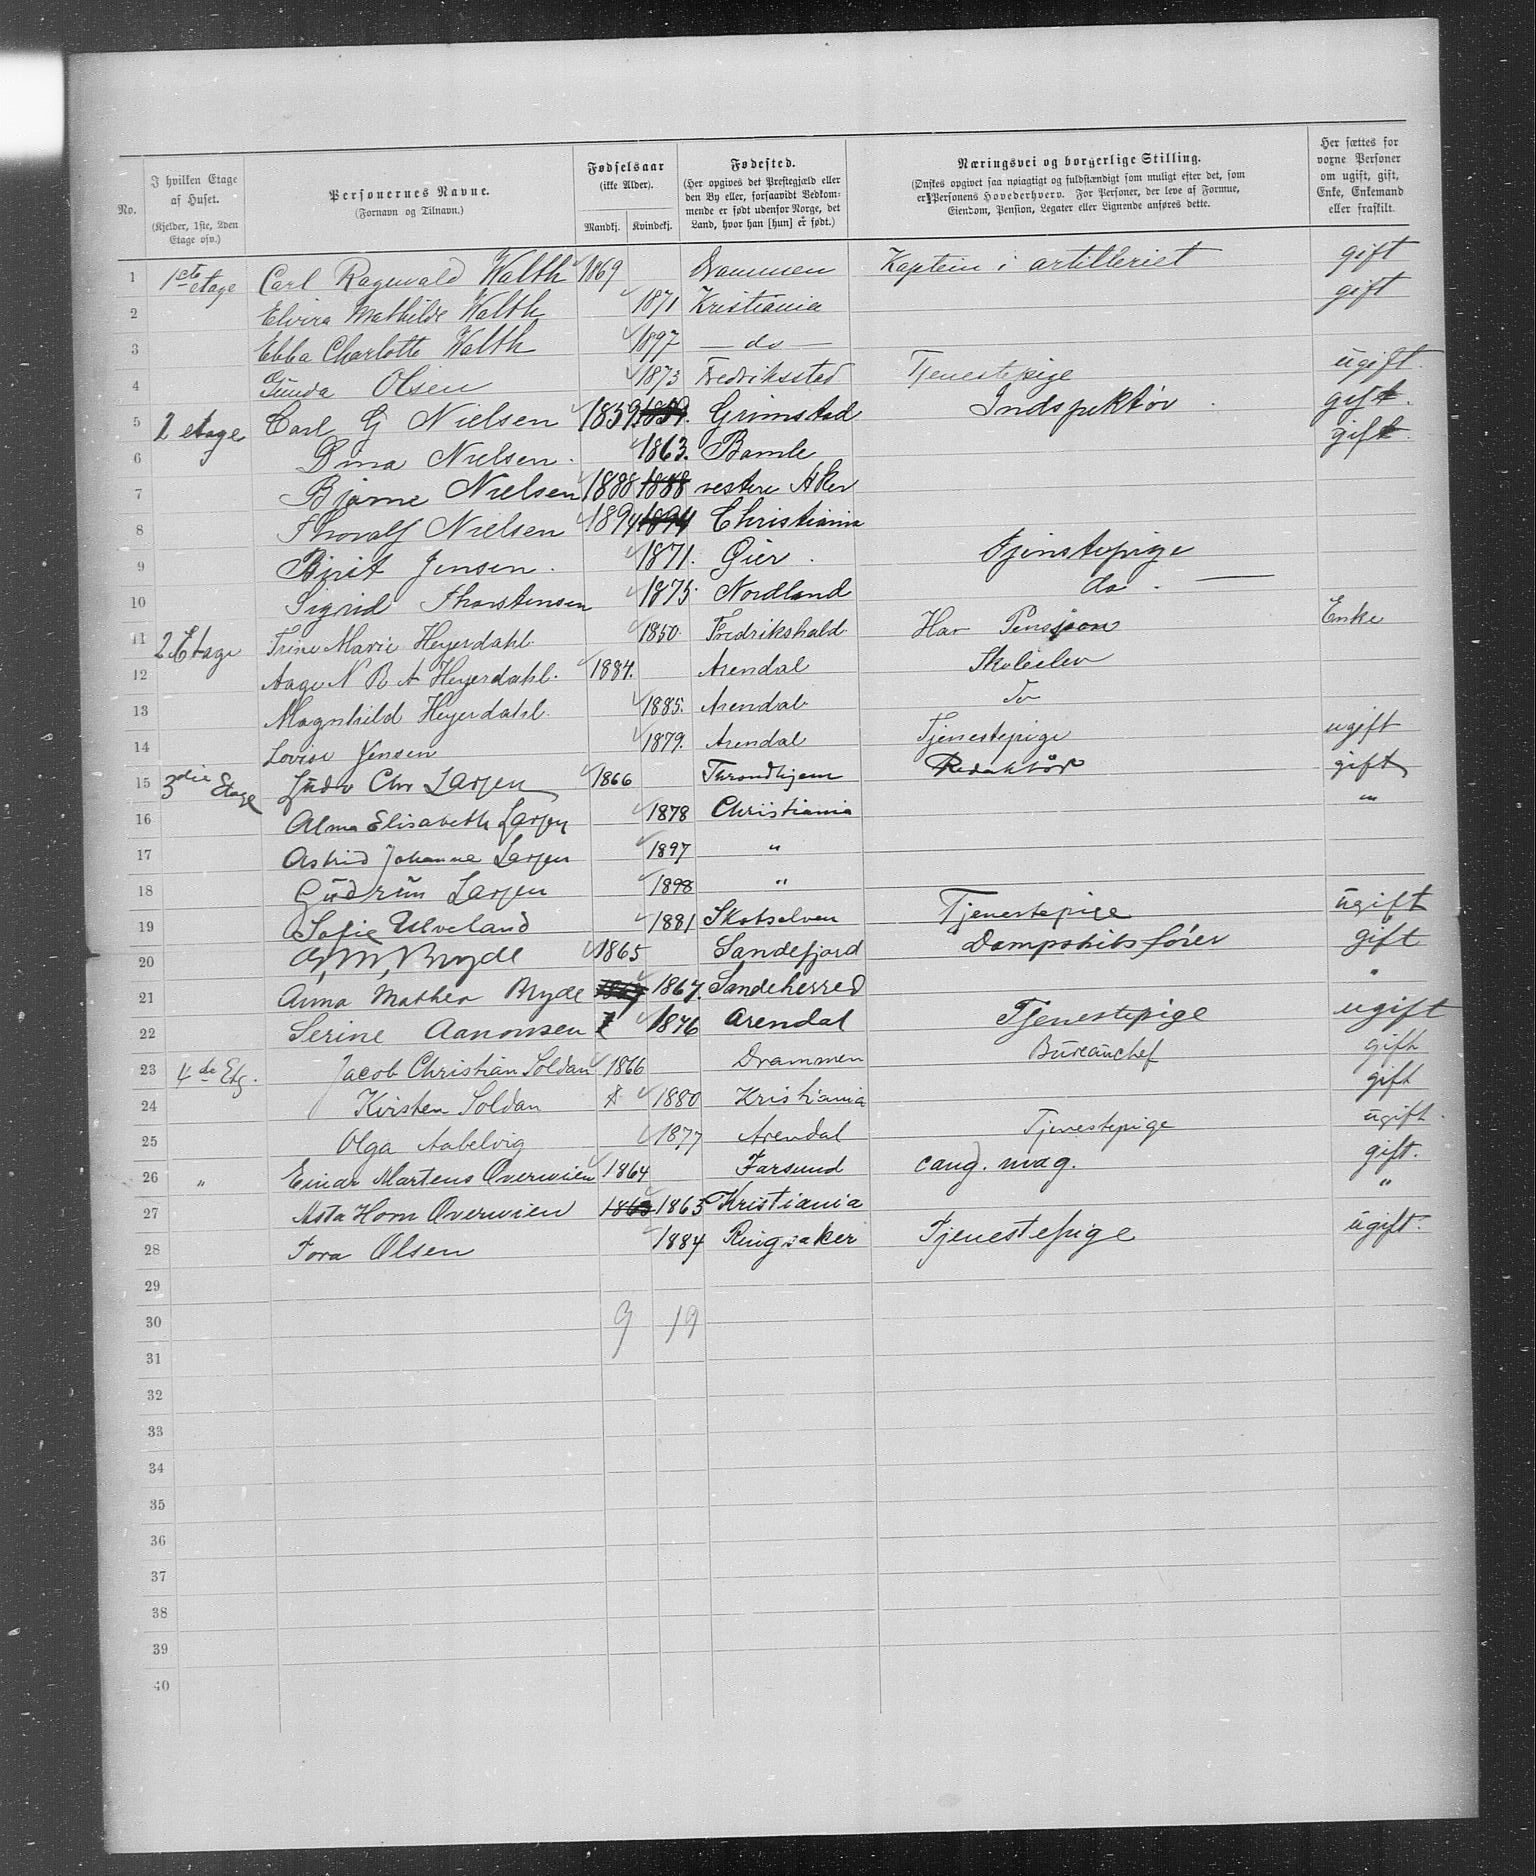 No.
I hvilken Etage af Huset. (Kjelder, 1ste, 2den Etage osv.)
Personernes Navne. (Fornavn og Tilnavn.)
Fødselsaar (ikke Alder). Mandkj. Kvindekj.
Fødested. (Her opgives det Prestegjæld eller den By eller, forsaavidt Vedkommende er født udenfor Norge, det Land, hvor han [hun] er født.)
Næringsvei og borgerlige Stilling. (Ønskes opgivet saa nøiagtigt og fuldstændigt som muligt efter det, som er Personens Hovederhverv. For Personer, der leve af Formue, Eiendom, Pension, Legater eller Lignende anføres dette.
Her sættes for voxne Personer om ugift, gift, Enke, Enkemand eller fraskilt.
1 1ste etage Carl Ragnvald Walth 1869 Drammen Kaptein i artilleriet gift
2 Elvira Mathilde Walth 1871 Kristiania gift
3 Ebba Charlotte Walth 1897 — do —
4 Gunda Olsen 1873 Fredriksstad Tjenestepige ugift.
5 2 etage Carl G Nielsen 1859 1859. Grimstad Indspektør gift.
6 Dina Nielsen. 1863. Bamle gift.
7 Bjarne Nielsen 1888 1888 vestre Aker
8 Thoralf Nielsen 1894 1894 Christiania
9 Birit Jensen. 1871. Øier. Tjenstepige
10 Sigrid Thorstensen 1875. Nordland do. —
11 2 Etage Trine Marie Heyerdahl. 1850. Fredrikshald. Har Pensjon Enke
12 Aage N R A Heyerdahl. 1884. Arendal Skoleelev
13 Magnhild Heyerdahl. 1885. Arendal do
14 Lovise Jensen 1879. Arendal Tjenestepige ugift
15 3die Etage Gudv Chr Larsen 1866 Throndhjem Redaktør gift
16 Alma Elisabeth Larsen 1878 Christiania "
17 Astrid Johanne Larsen 1897 "
18 Gudrun Larsen 1898 "
19 Sofie Ulveland 1881 Skotselven Tjenestepige ugift
20 A, M, Bryde 1865 Sandefjord Dampskibsfører gift
21 Anna Mathea Bryde 1867 1867. Sandeherred "
22 Serine Aanonsen 1876 Arendal Tjenestepige ugift
23 4de Etg. Jacob Christian Soldan 1866 Drammen Bureauchef gift
24 Kirsten Soldan 1880 Kristiania gift
25 Olga Aabelvig 1877 Arendal Tjenestepige ugift.
26 " Einar Martens Overwien 1864 Farsund cand. mag. gift.
27 Asta Horn Overwien 1865 1865 Kristiania "
28 Tora Olsen 1884 Ringsaker Tjenestepige ugift.
29
30 9 19
31
32
33
34
35
36
37
38
39
40